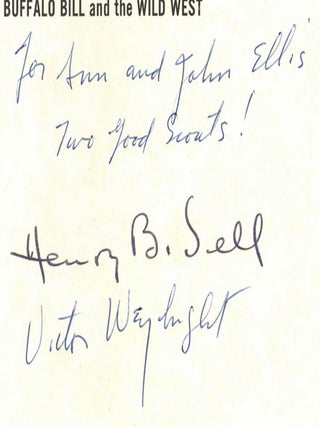 BUFFALO BILL and the WILD WEST
For Ann and John Ellis
Two Good Scouts!
Henry B. Sell
Victor Weybright